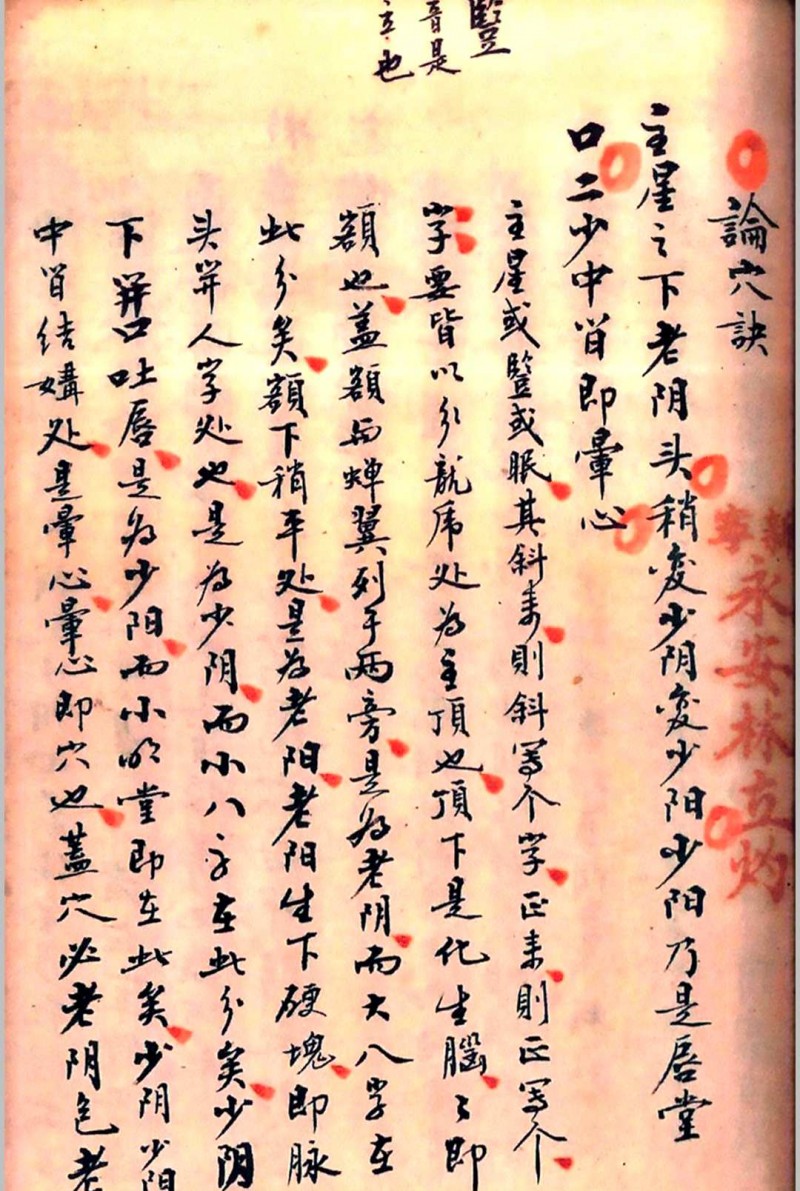 豎
音是
立也
論穴訣
主星之下老阴头稍变少阴变少阳少阳乃是唇堂
口二少中间即暈心
主星或豎或眠其斜来則斜写个字正来則正写个
字要皆以分龍虎处为主頂也頂下是化生腦々即
額也蓋額与蝉翼列于两旁是为老阴而大八字在
此分矣額下稍平处是为老阳老阳生下硬塊即脉
头开人字处也是为少阴而小八字在此分矣少阴
下开口吐唇是为少阳而小明堂即在此矣少阴少阳
中间结媾处是暈心暈心即穴也蓋穴必老阴包老
永安林立灼